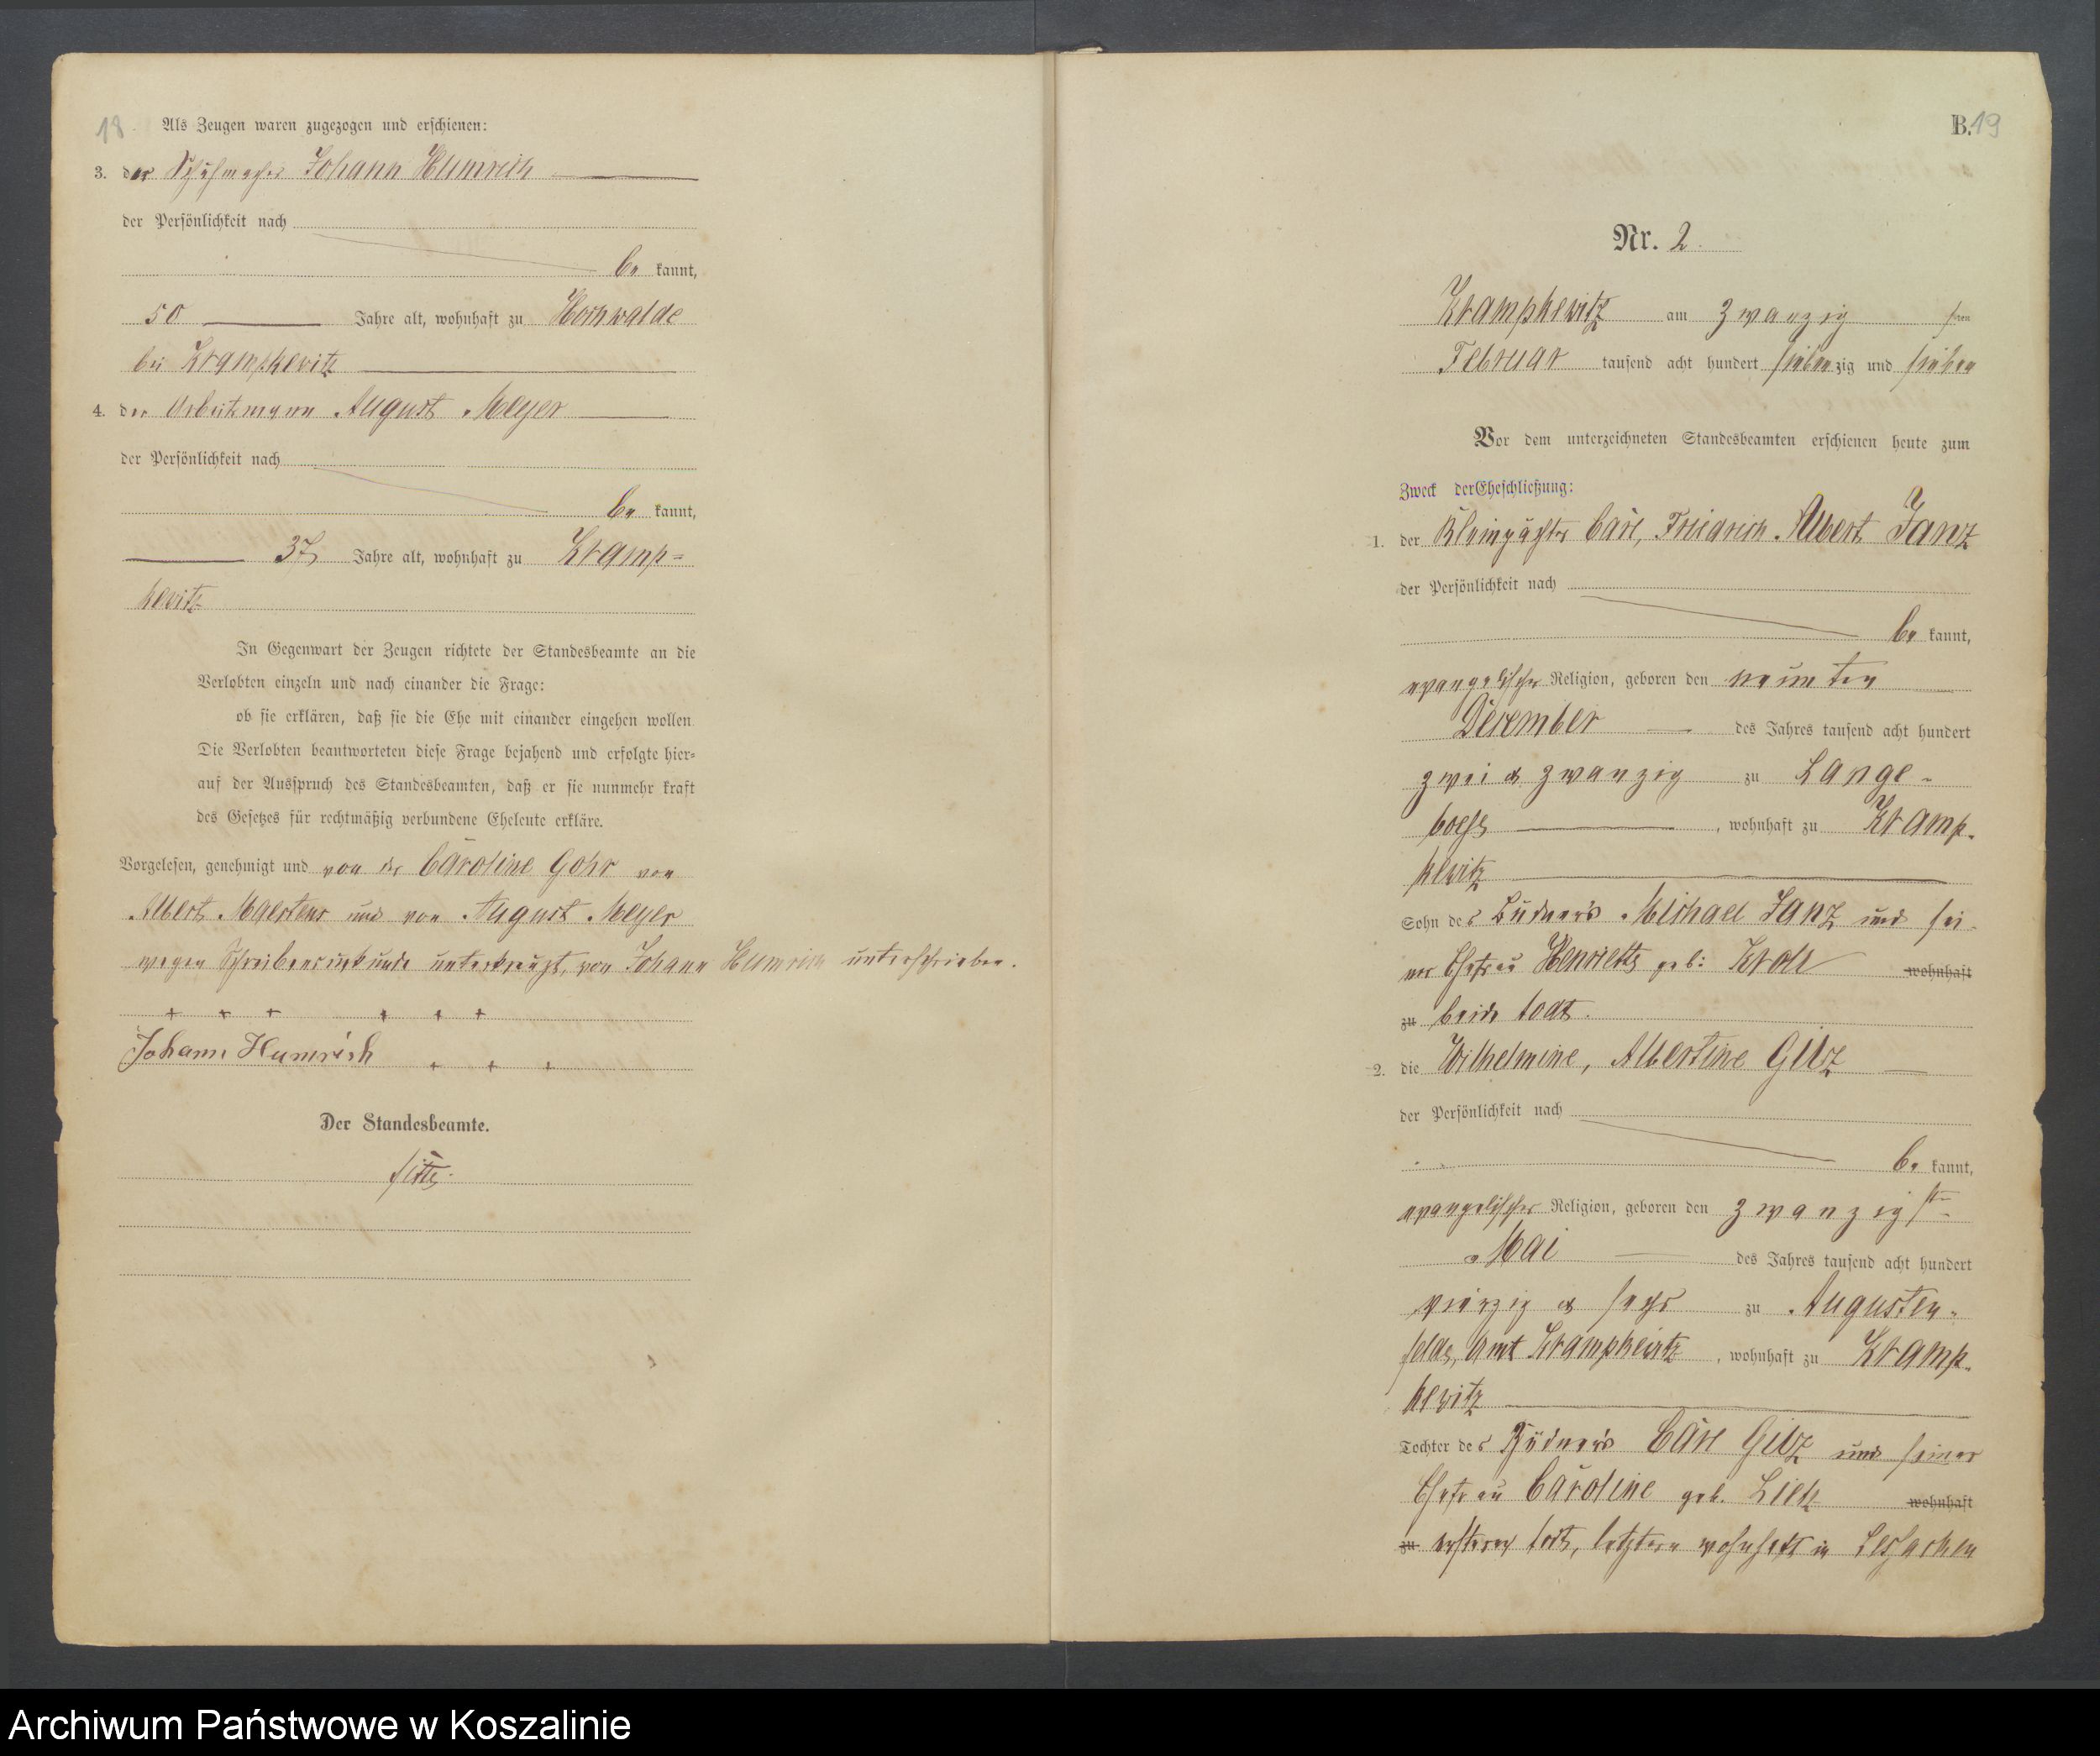 18
Als Zeugen waren zugezogen und erschienen:
3. der Schuhmacher Johann Humrich
der Persönlichkeit nach
be kannt,
50 Jahre alt, wohnhaft zu Hochwalde
bei Krampkewitz
4. der Arbeitsmann August Meyer
der Persönlichkeit nach
be kannt,
37 Jahre alt, wohnhaft zu Kramp=
kewitz
In Gegenwart der Zeugen richtete der Standesbeamte an die
Verlobten einzeln und nach einander die Frage:
ob sie erklären, daß sie die Ehe mit einander eingehen wollen.
Die Verlobten beantworteten diese Frage bejahend und erfolgte hier=
auf der Ausspruch des Standesbeamten, daß er sie nunmehr kraft
des Gesetzes für rechtmäßig verbundene Eheleute erkläre.
Vorgelesen, genehmigt und von der Caroline Gohr von
Albert Maertens und von August Meyer
wegen Schreibensunkunde unterkreuzt, von Johann Humrich unterschrieben.
+ + + + + +
Johann Humrich + + +
Der Standesbeamte.
B. 19
Nr. 2.
Krampkewitz am zwanzig sten
Februar tausend acht hundert siebenzig und sieben
Vor dem unterzeichneten Standesbeamten erschienen heute zum
Zweck der Eheschließung:
1. der Kleinpächter Carl, Friedrich Albert Janz
der Persönlichkeit nach
be kannt,
evangelischer Religion, geboren den neunten
Dezember des Jahres tausend acht hundert
zwei & zwanzig zu Lange-
boese, wohnhaft zu Kramp-
kewitz
Sohn des Büdners Michael Janz und sei-
ner Ehefrau Henriette geb: Kroll wohnhaft
zu beide todt.
2. die Wilhelmine, Albertine Gilz
der Persönlichkeit nach
be kannt,
evangelischer Religion, geboren den zwanzigsten
Mai des Jahres tausend acht hundert
vierzig & sechs zu Augusten-
felde, Amt Krampkewitz, wohnhaft zu Kramp-
kewitz
Tochter des Büdners Carl Gilz und seiner
Ehefrau Caroline geb. wohnhaft
zu ersterer todt, letztere wohnhaft in
Archiwum Państwowe w Koszalinie